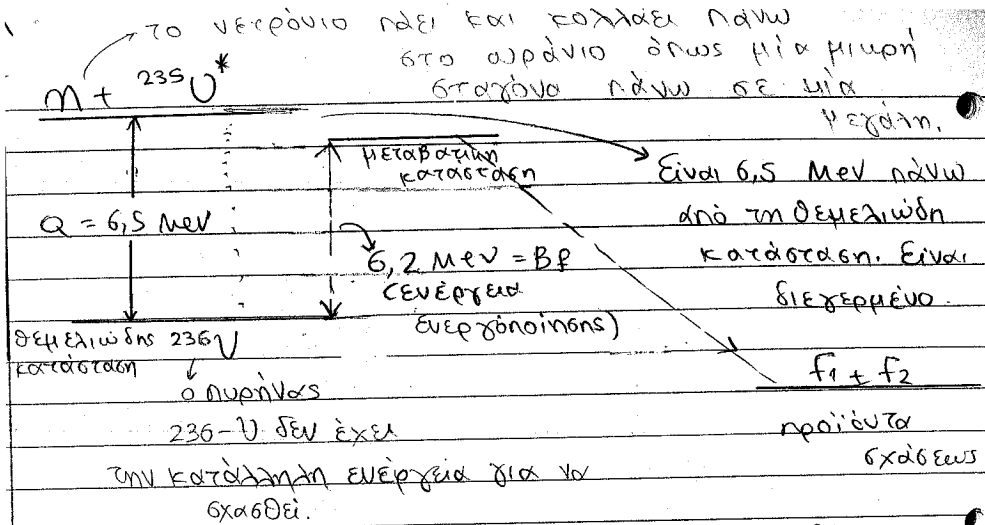 το νετρόνιο πάει και κολλάει πάνω
στο ουράνιο όπως μία μικρή
σταγόνα πάνω σε μία
μεγάλη.
n + ²³⁵U*
μεταβατική
κατάσταση
Είναι 6,5 Mev πάνω
από τη θεμελιώδη
κατάσταση. Είναι
διεγερμένο.
Q = 6,5 Mev
6,2 Mev = Bf
(ενέργεια
ενεργόποίησης)
θεμελιώδης 236U
κατάσταση
ο πυρήνας
236-U δεν έχει
την κατάλληλη ενέργεια για να
σχασθεί.
f1 + f2
προϊόντα
σχάσεως